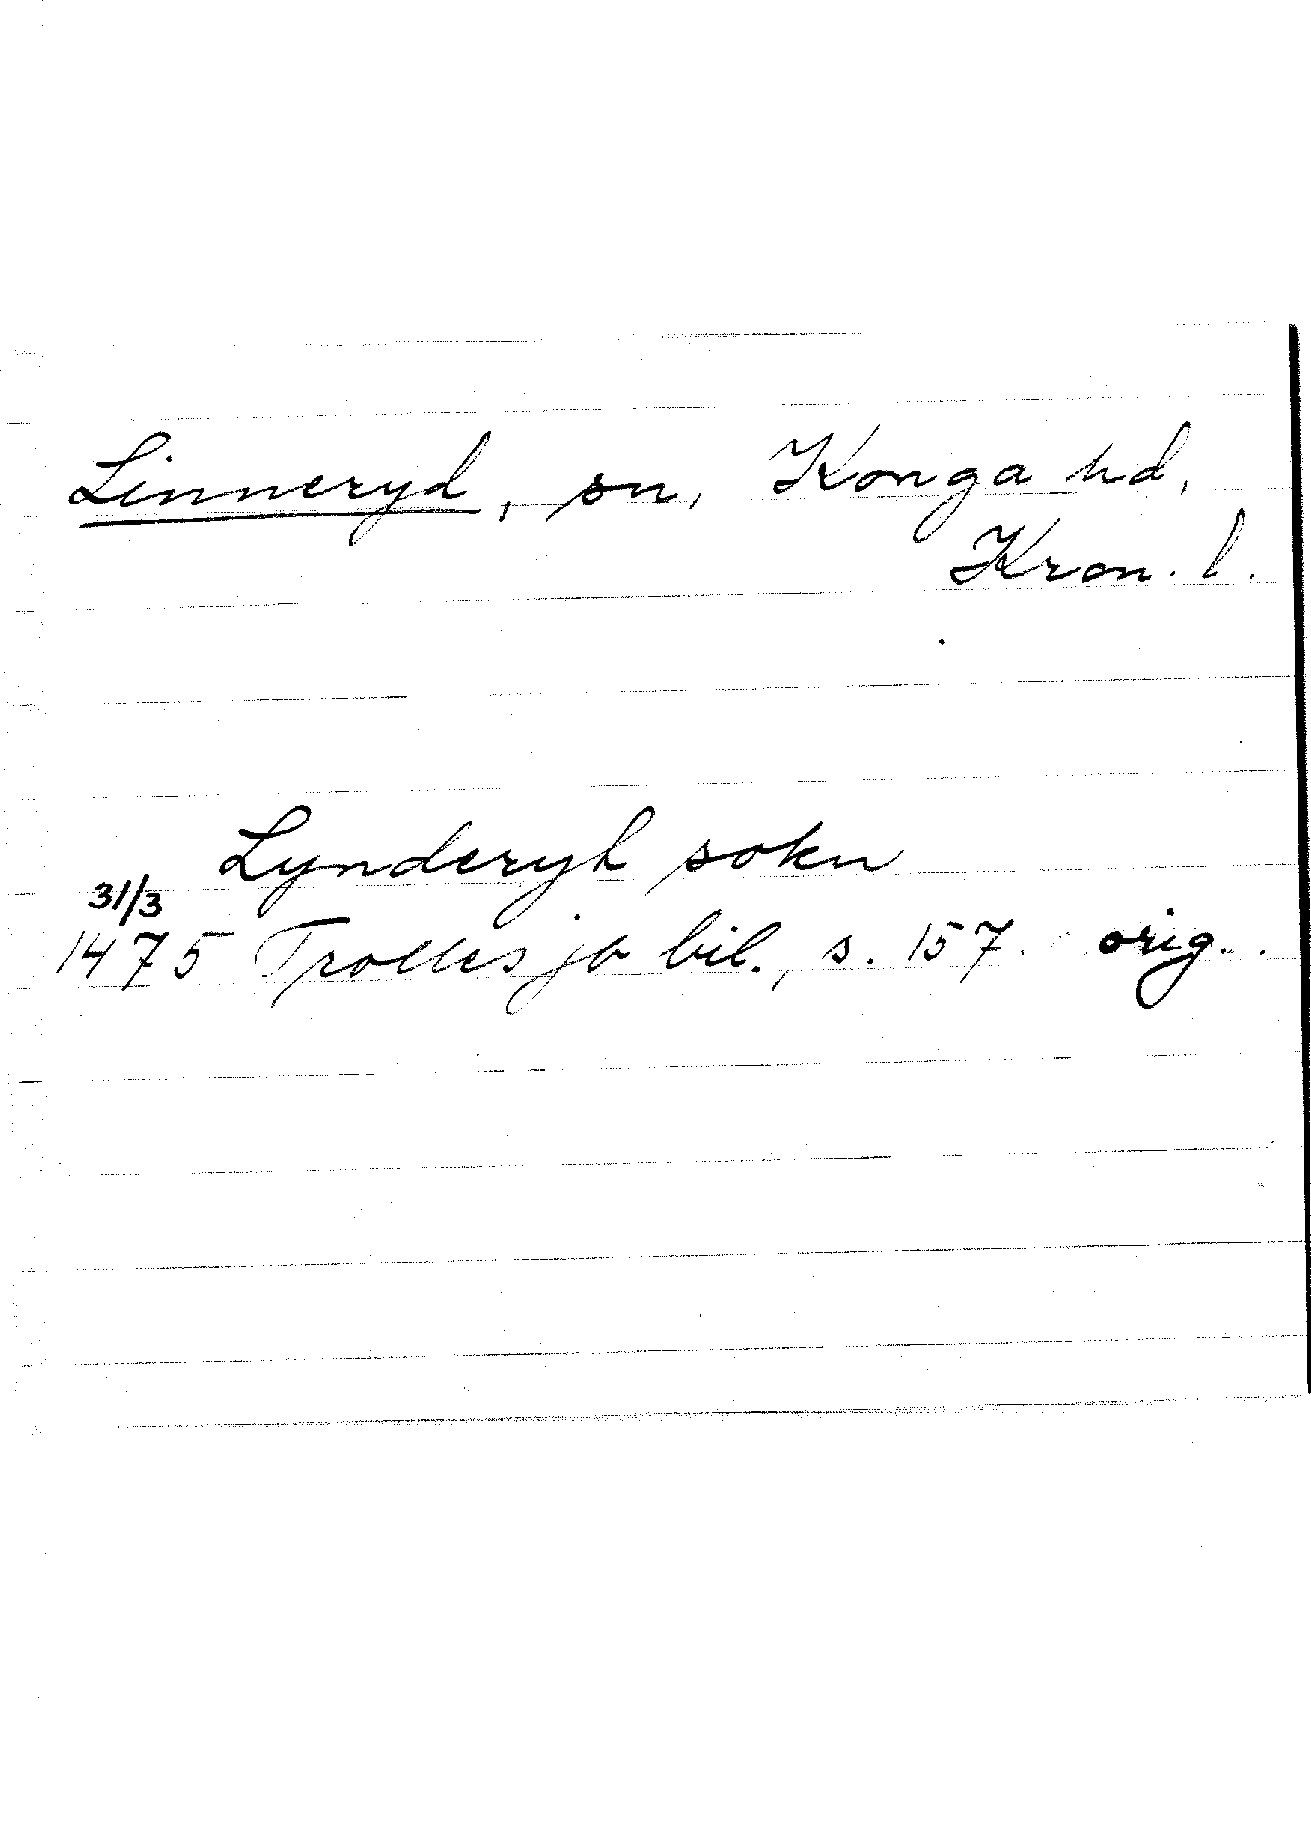 Linneryd, sn, Konga hd,
Kron. l.
Lynderyh sokn
31/3
1475 Trollesjb bil., s. 157. orig.